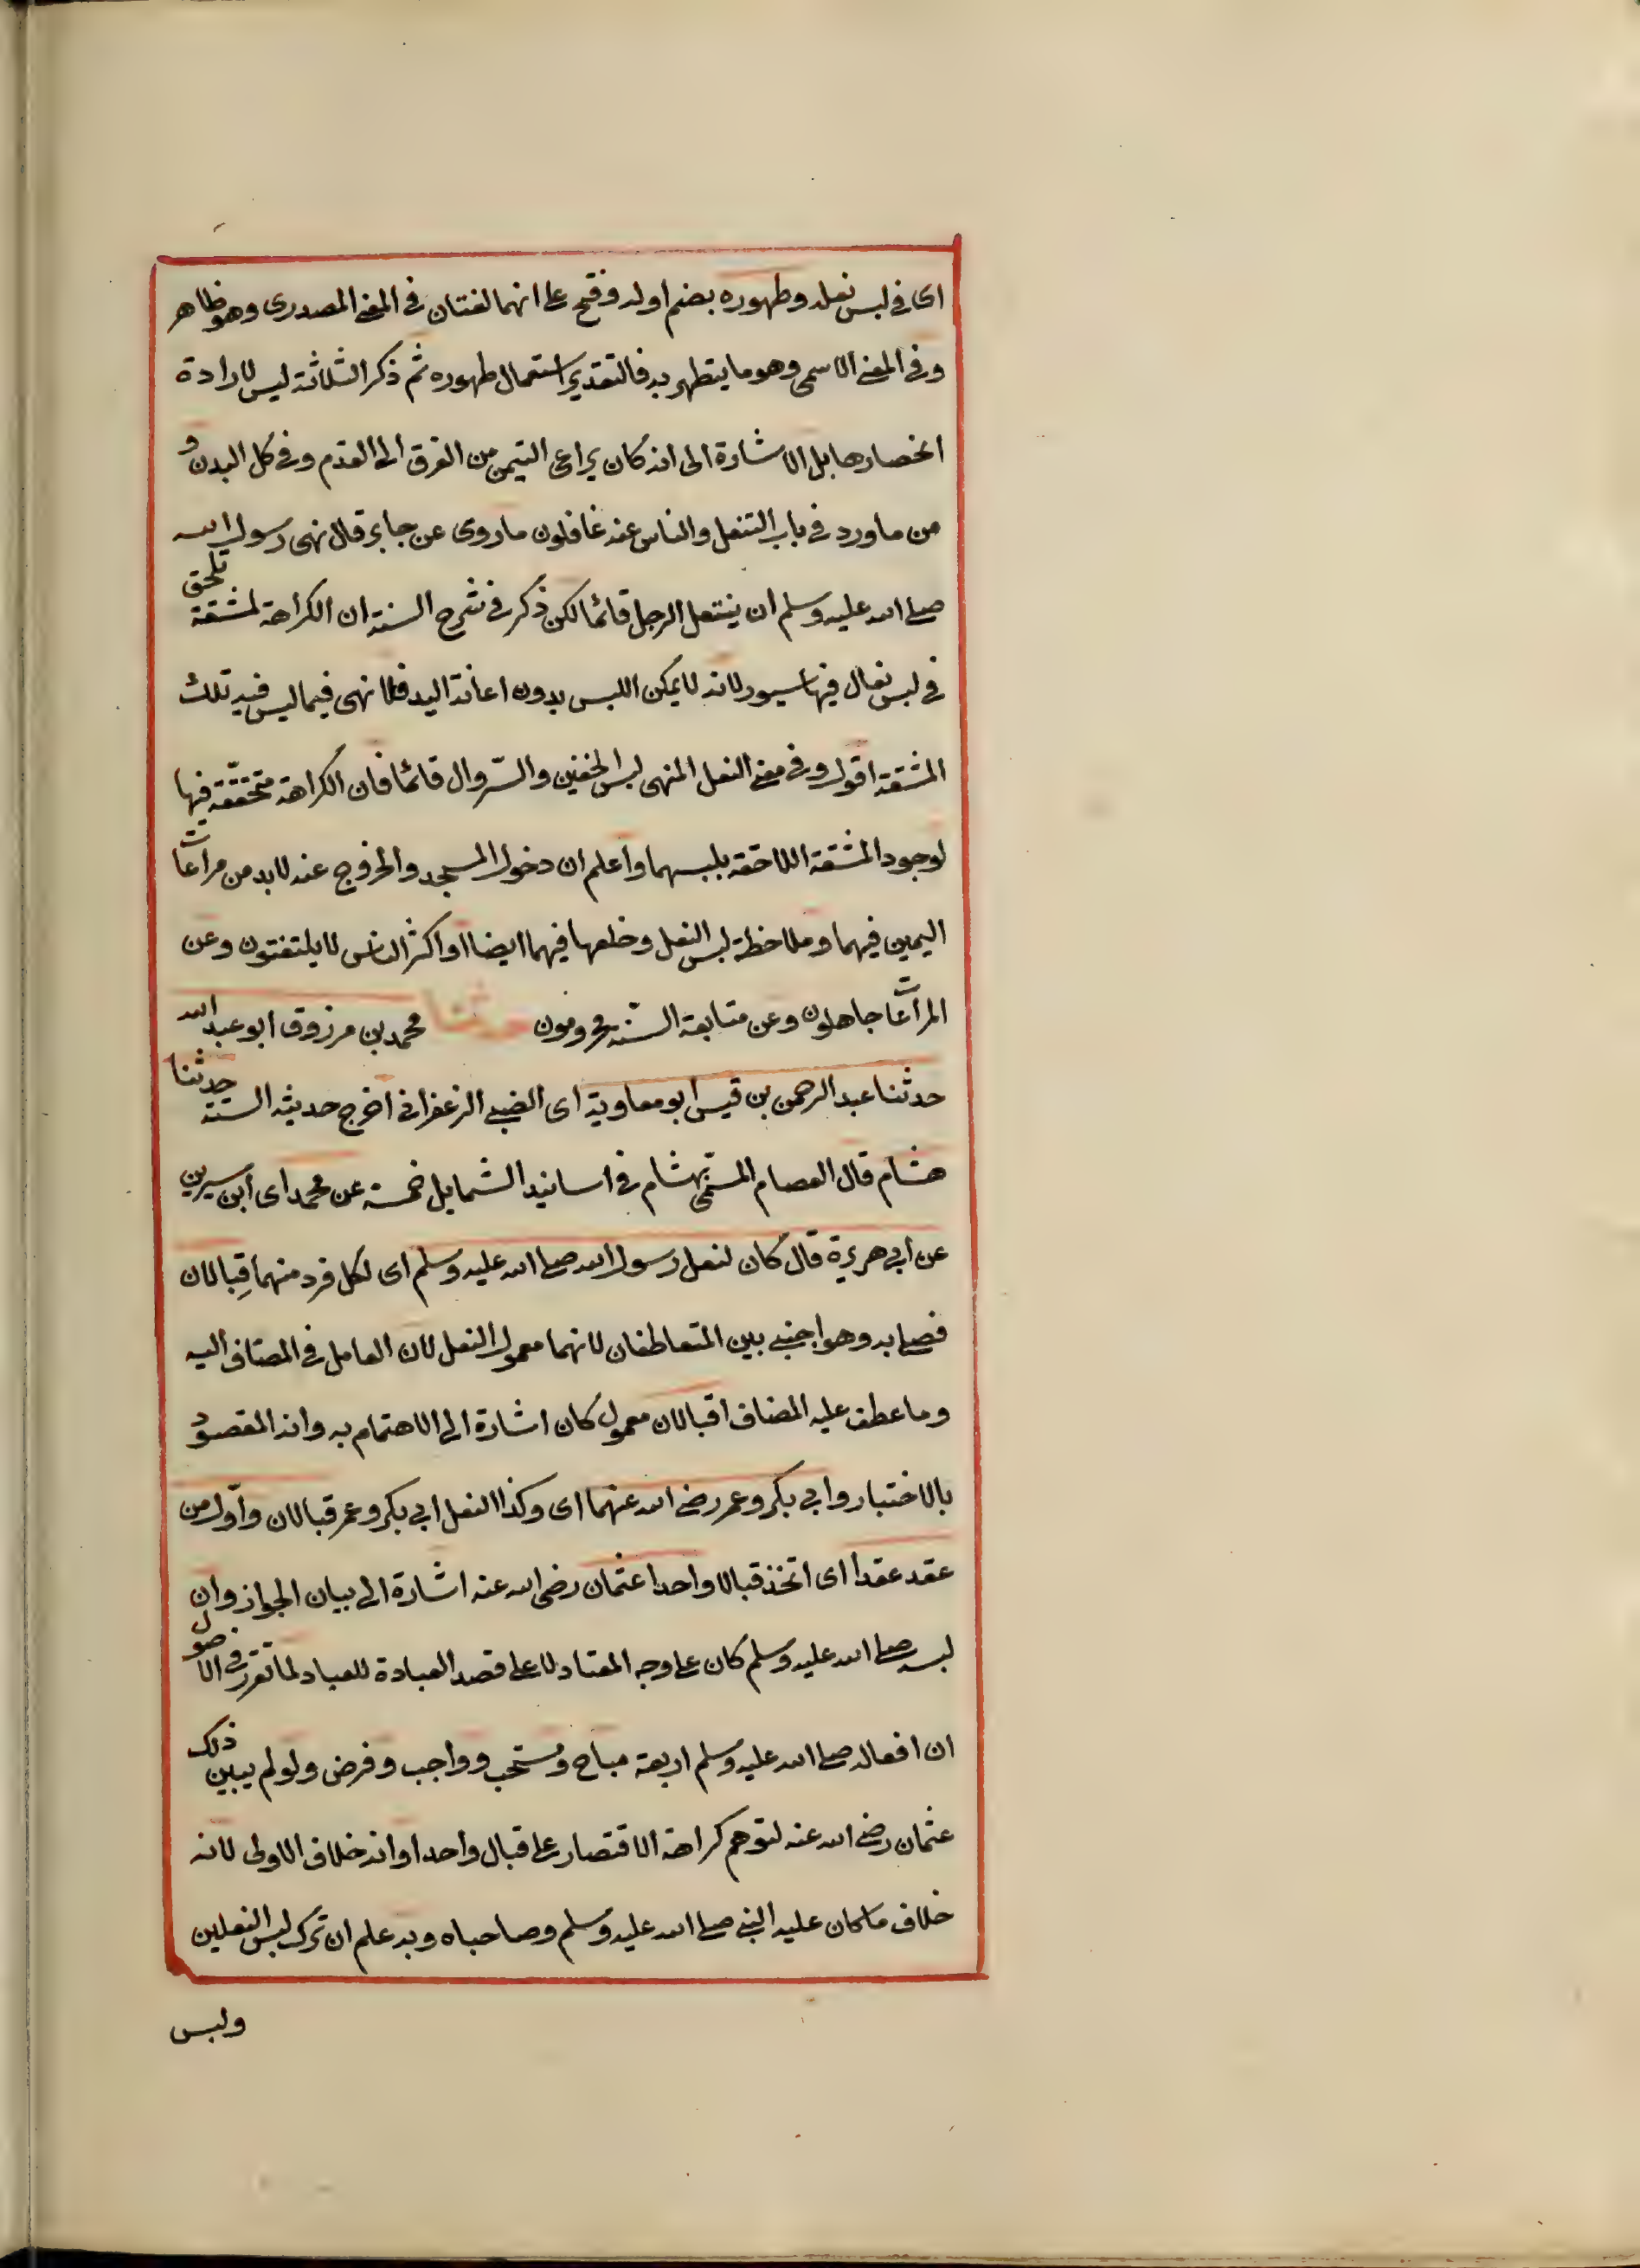 اى فى لبس نعله وطهوره بضم اوله وفتح على انهما لغتان فى المعنى المصدرى وهو ظاهر
وفى المعنى الاسمى وهو ما يتطهر به فالتقدير استعمال طهوره ثم ذكر الثلاثة ليس لارادة
انحصارها بل الاشارة الى انه كان يراعى التيمن من الفرق الى القدم وفى كل البدن و
من ما ورد فى باب التنعل والناس عنه غافلون ما روى عن جابر قال نهى رسول الله
صلى الله عليه وسلم ان ينتعل الرجل قائما لكن ذكر فى شرح السنة ان الكراهة لمشقة تلحق
فى لبس نعال فيها سيور لانه لا يمكن اللبس بدون اعانة اليد فلا نهى فيما ليس فيه تلك
المشقة اقول وفى معنى النعل المنهى لبس الخفين والسروال قائما فان الكراهة متحققة فيها
لوجود المشقة اللاحقة بلبسهما واعلم ان دخول المسجد والخروج عنه لابد من مراعات
اليمين فيهما وملاحظة لبس النعل وخلعها فيهما ايضا او اكثر الناس لا يلتفتون وعن
المراعات جاهلون وعن متابعة السنة محرومون حدثنا محمد بن مرزوق ابو عبد الله
حدثنا عبد الرحمن بن قيس ابو معاوية اى الضبى الزعفرانى اخرج حديثه الستة حدثنا
هشام قال العصام المسمى بهشام فى اسانيد الشمايل خمسة عن محمد اى ابن سيرين
عن ابى هريرة قال كان لنعل رسول الله صلى الله عليه وسلم اى لكل فرد منهما قبالان
فصل به وهو اجنبى بين المتعاطفان لانهما معمول النعل لان العامل فى المضاف اليه
وما عطف عليه المضاف اقبالان معمول كان اشارة الى الاهتمام به وانه المقصود
بالاختبار وابى بكر وعمر رضى الله عنهما اى وكذا النعل ابى بكر وعمر قبالان واول من
عقد عقدا اى اتخذ قبالا واحدا عثمان رضى الله عنه اشارة الى بيان الجواز وان
لبسه صلى الله عليه وسلم كان على وجه المعتاد لا على قصد العبادة للعباد لما تقرر فى الاصول
ان افعاله صلى الله عليه وسلم اربعة مباح ومستحب وواجب وفرض ولو لم يبين ذلك
عثمان رضى الله عنه لتوهم كراهة الاقتصار على قبال واحد او انه خلاف الاولى لانه
خلاف ما كان عليه النبى صلى الله عليه وسلم وصاحباه وبه علم ان ترك لبس النعلين
ولبس